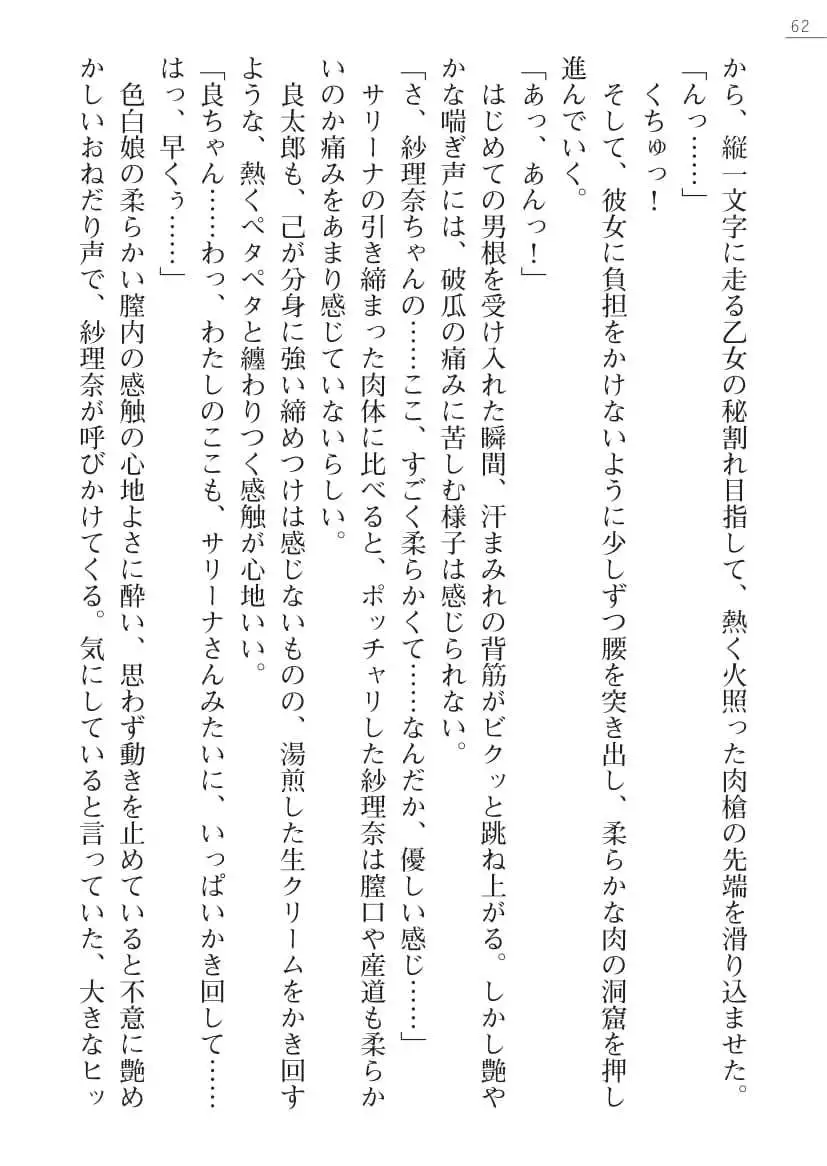 62
から、縦一文字に走る乙女の秘割れ目指して、熱く火照った肉槍の先端を滑り込ませた。
「んっ……」
くちゅっ！
そして、彼女に負担をかけないように少しずつ腰を突き出し、柔らかな肉の洞窟を押し
進んでいく。
「あっ、あんっ！」
はじめての男根を受け入れた瞬間、汗まみれの背筋がビクッと跳ね上がる。しかし艶や
かな喘ぎ声には、破瓜の痛みに苦しむ様子は感じられない。
「さ、紗理奈ちゃんの……ここ、すごく柔らかくて……なんだか、優しい感じ……」
サリーナの引き締まった肉体に比べると、ポッチャリした紗理奈は膣口や産道も柔らか
いのか痛みをあまり感じていないらしい。
良太郎も、己が分身に強い締めつけは感じないものの、湯煎した生クリームをかき回す
ような、熱くペタペタと纏わりつく感触が心地いい。
「良ちゃん……わっ、わたしのここも、サリーナさんみたいに、いっぱいかき回して……
はっ、早くぅ……」
色白娘の柔らかい膣内の感触の心地よさに酔い、思わず動きを止めていると不意に艶め
かしいおねだり声で、紗理奈が呼びかけてくる。気にしていると言っていた、大きなヒッ